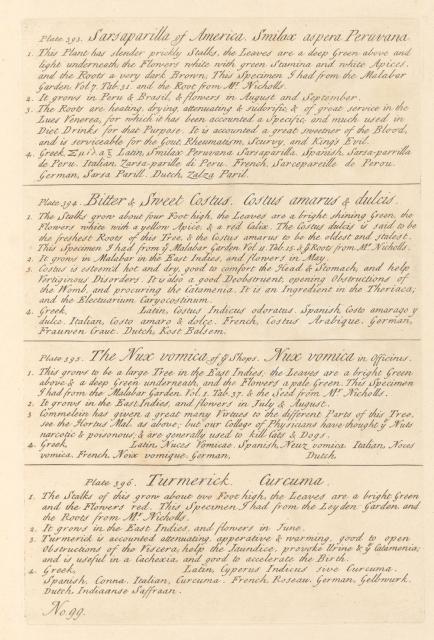 Plate 393. Sarsaparilla of America. Smilax aspera Peruvana
1. This Plant has slender prickly Stalks, the Leaves are a deep Green above and
light underneath, the Flowers white with green Stamina and white Apices,
and the Roots a very dark Brown; This Specimen I had from the Malabar
Garden Vol 7. Tab. 31. and the Root from Mr. Nicholls.
2. It grows in Peru & Brasil, & flowers in August and September.
3. The Roots are heating, drying, attenuating & sudorific, & of great service in the
Lues Venerea, for which it has been accounted a Specific, and much used in
Diet Drinks for that Purpose. It is accounted a great sweetner of the Blood,
and is serviceable for the Gout, Rheumatism, Scurvy, and King's Evil.
4. Greek, Σμίλαξ Latin, Smilax Peruvana Sarsaparilla. Spanish, Sarsa-parrilla
de Peru. Italian, Zarsa-parille di Peru. French, Sarcepareille de Perou.
German, Sarsa Parill. Dutch, Zalza Paril.
Plate 394. Bitter & Sweet Costus. Costus amarus & dulcis.
1. The Stalks grow about four Foot high, the Leaves are a bright shining Green, the
Flowers white with a yellow Apice, & a red Calix. The Costus dulcis is said to be
the freshest Roots of this Tree, & the Costus amarus to be the oldest and stalest.
This Specimen I had from ye Malabar Garden Vol. 11. Tab. 15. & ye Root from Mr. Nicholls.
2. It grows in Malabar in the East Indies, and flowers in May.
3. Costus is esteem'd hot and dry, good to comfort the Head & Stomach, and help
Vertiginous Disorders. It is also a good Deobstruent, opening Obstructions of
the Womb, and procuring the Catamenia. It is an Ingredient in the Theriaca,
and the Electuarium Caryocostinum.
4. Greek, Latin, Costus Indicus odoratus. Spanish, Costo amarago y
dulce. Italian, Costo amaro & dolce. French, Costus Arabique. German,
Frauwen Craut. Dutch, Kost Balsem.
Plate 395. The Nux vomica of ye Shops. Nux vomica in Officinis.
1. This grows to be a large Tree in the East Indies, the Leaves are a bright Green
above & a deep Green underneath, and the Flowers a pale Green. This Specimen
I had from the Malabar Garden Vol. 1. Tab. 37. & the Seed from Mr. Nicholls.
2. It grows in the East Indies, and flowers in July & August.
3 Commelein has given a great many Virtues to the different Parts of this Tree,
see the Hortus Mal. as above; but our College of Physicians have thought ye Nuts
narcotic & poisonous; & are generally used to kill Cats & Dogs.
4. Greek, Latin, Nuces Vomicae. Spanish, Neuz vomica. Italian, Noces
vomica. French, Noix vomique. German, Dutch.
Plate 396. Turmerick. Curcuma.
1. The Stalks of this grow about two Foot high, the Leaves are a bright Green
and the Flowers red. This Specimen I had from the Leyden Garden, and
the Roots from Mr. Nicholls.
2. It grows in the East Indies, and flowers in June.
3. Turmerick is accounted attenuating, apperative & warming, good to open
Obstructions of the Viscera, help the Jaundice, provoke Urine & ye Catamenia;
and is useful in a Cachexia, and good to accelerate the Birth.
4. Greek, Latin, Cyperus Indicus sive Curcuma.
Spanish, Conna. Italian, Curcuma. French, Roseau. German, Gelbwurk.
Dutch, Indiaanse Saffraan.
No. 99.